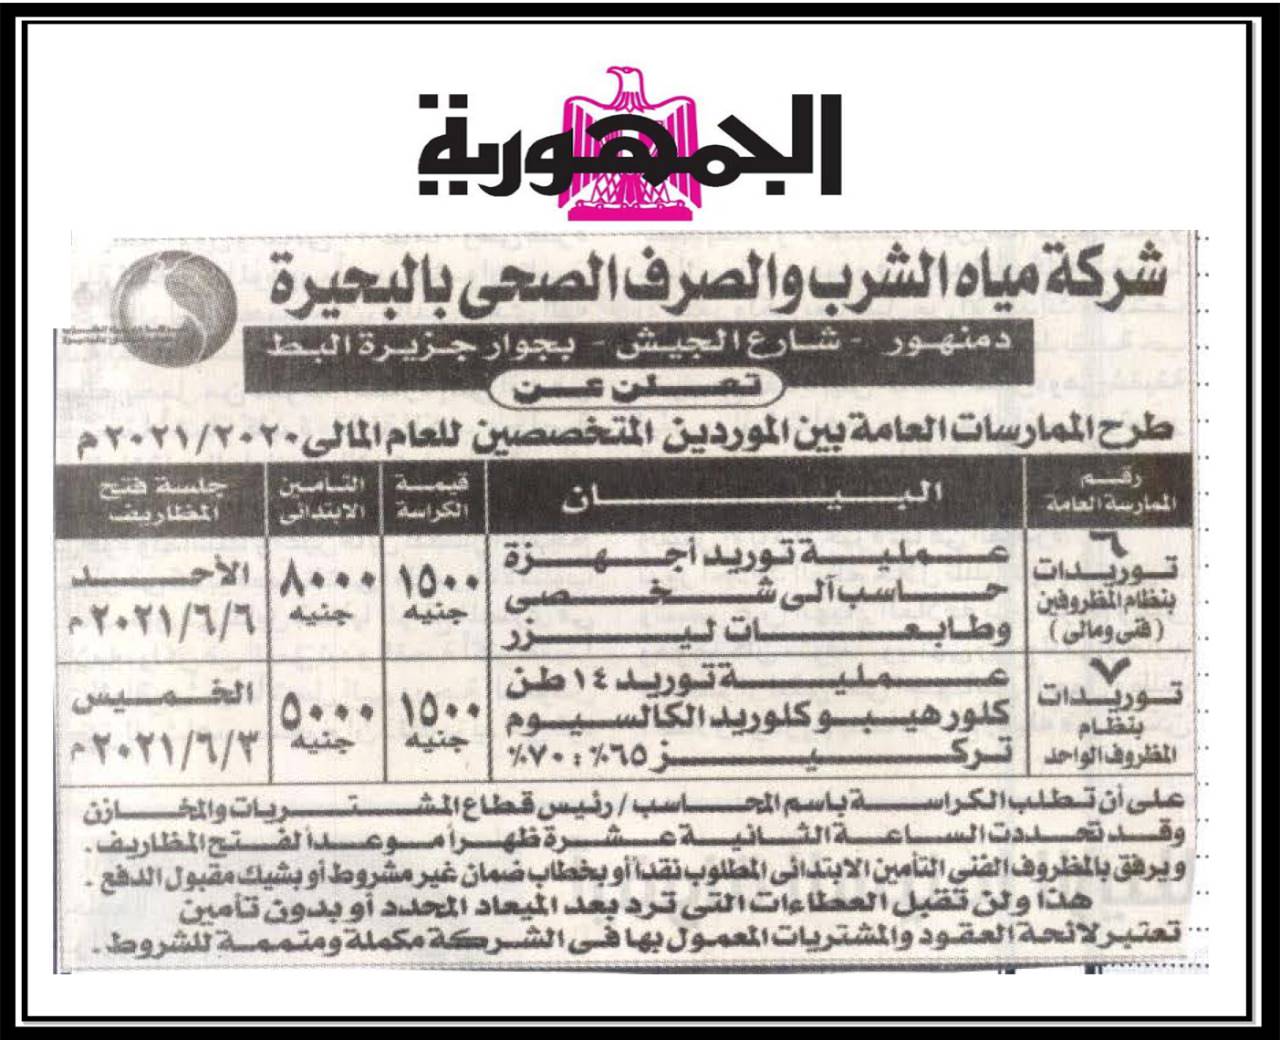 الجمهورية
شركة مياه الشرب والصرف الصحى بالبحيرة
دمنهور - شارع الجيش - بجوار جزيرة البط
تعلن عن
طرح الممارسات العامة بين الموردين المتخصصين للعام المالى ٢٠٢١/٢٠٢٠م
رقم الممارسة العامة | البيان | قيمة الكراسة | التأمين الابتدائى | جلسة فتح المظاريف
٦
توريدات
بنظام المظروفين
(فنى ومالى)
عملية توريد أجهزة
حاسب آلى شخصى
وطابعات ليزر
١٥٠٠
جنيه
٨٠٠٠
جنيه
الأحد
٢٠٢١/٦/٦م
٧
توريدات
بنظام
المظروف الواحد
عملية توريد ١٤ طن
كلور هيبو كلوريد الكالسيوم
تركيز ٦٥٪ : ٧٠٪
١٥٠٠
جنيه
٥٠٠٠
جنيه
الخميس
٢٠٢١/٦/٣م
على أن تطلب الكراسة باسم المحاسب / رئيس قطاع المشتريات والمخازن
وقد تحددت الساعة الثانية عشرة ظهراً موعداً لفتح المظاريف.
ويرفق بالمظروف الفنى التأمين الابتدائى المطلوب نقداً أو بخطاب ضمان غير مشروط أو بشيك مقبول الدفع.
هذا ولن تقبل العطاءات التى ترد بعد الميعاد المحدد أو بدون تأمين
تعتبر لائحة العقود والمشتريات المعمول بها فى الشركة مكملة ومتممة للشروط.